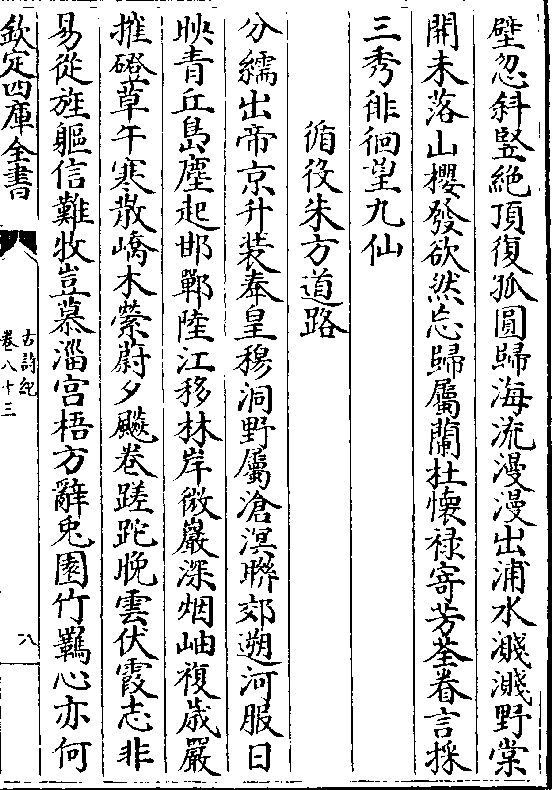 壁忽斜豎絶頂復孤圓歸海流漫漫出浦水濺濺野棠
開未落山櫻發欲然忘歸屬蘭杜懷禄寄芳荃眷言採
三秀徘徊望九仙
循役朱方道路
分繻出帝京升裝奉皇穆洞野屬滄溟聯郊遡河服日
映青丘島塵起邯鄲陸江移林岸微巖深烟岫複歲嚴
摧磴草午寒散嶠木縈蔚夕飈卷蹉跎晩雲伏霞志非
易從旌軀信難牧豈慕淄宫梧方辭兎園竹羈心亦何
欽定四庫全書
古詩紀
卷八十三
八